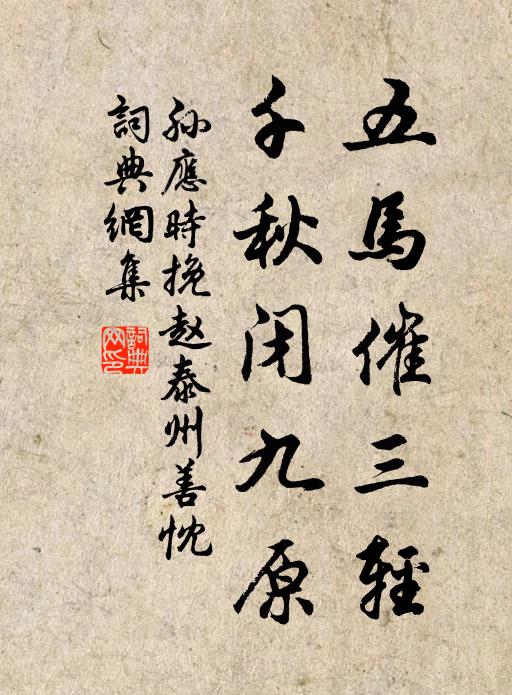 五馬催三輕
千秋閉九原
孫應時挽赵泰州善忱
詞典網集
詞典网印